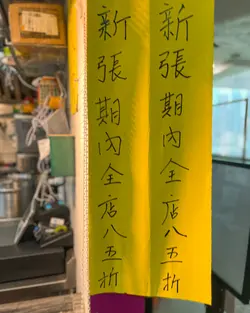 新張期內全店八五折
新張期內全店八五折